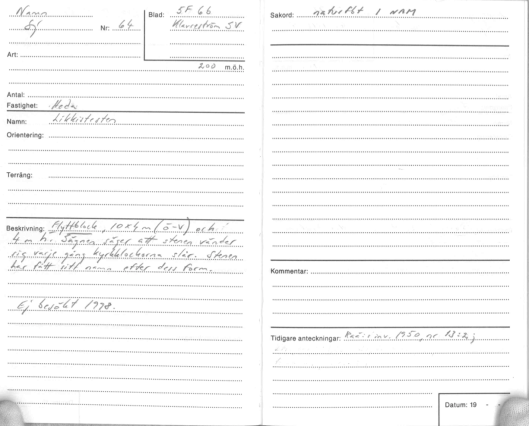 Namn
Ej Nr: 64
Blad: SF 66
SV
Art:
200 m.ö.h.
Antal:
Fastighet: Heda
Namn: Likkistesten
Orientering:
Terräng:
Beskrivning: Flyttblock, 10x5 m (Ö-V) och
4 m h. Sägnen säger att stenen vänder
sig varje gång kyrkklockorna slår. Stenen
har fått sitt namn efter dess form.
Ej besökt 1978.
Sakord: naturfbt I NAM
Kommentar:
Tidigare anteckningar: Raä:s inv. 1950, nr
Datum: 19 - -